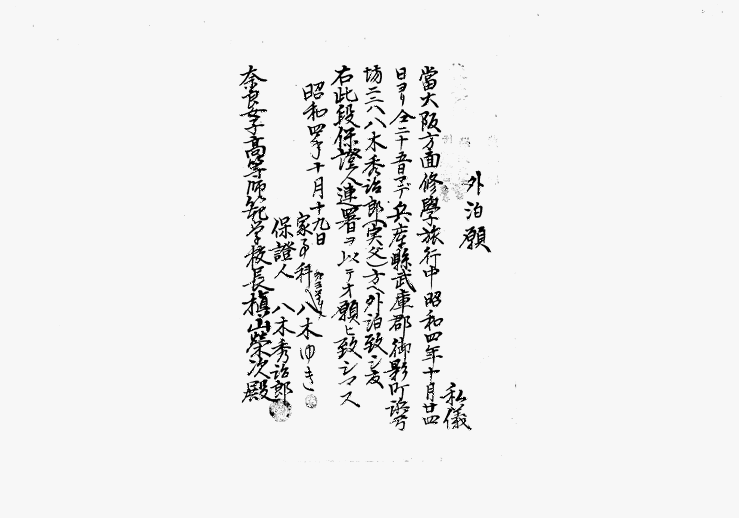 外泊願
私儀
當大阪方面修學旅行中昭和四年十月廿四
日ヨリ仝二十五日マデ兵庫縣武庫郡御影町
坊二二八八木秀治郎(実父)方ヘ外泊致シ度
右此段保證人連署ヲ以テオ願ヒ致シマス
昭和四年十月十九日
家事科
八木ゆき
保證人 八木秀治郎
奈良女子高等師範学校長槇山榮次殿